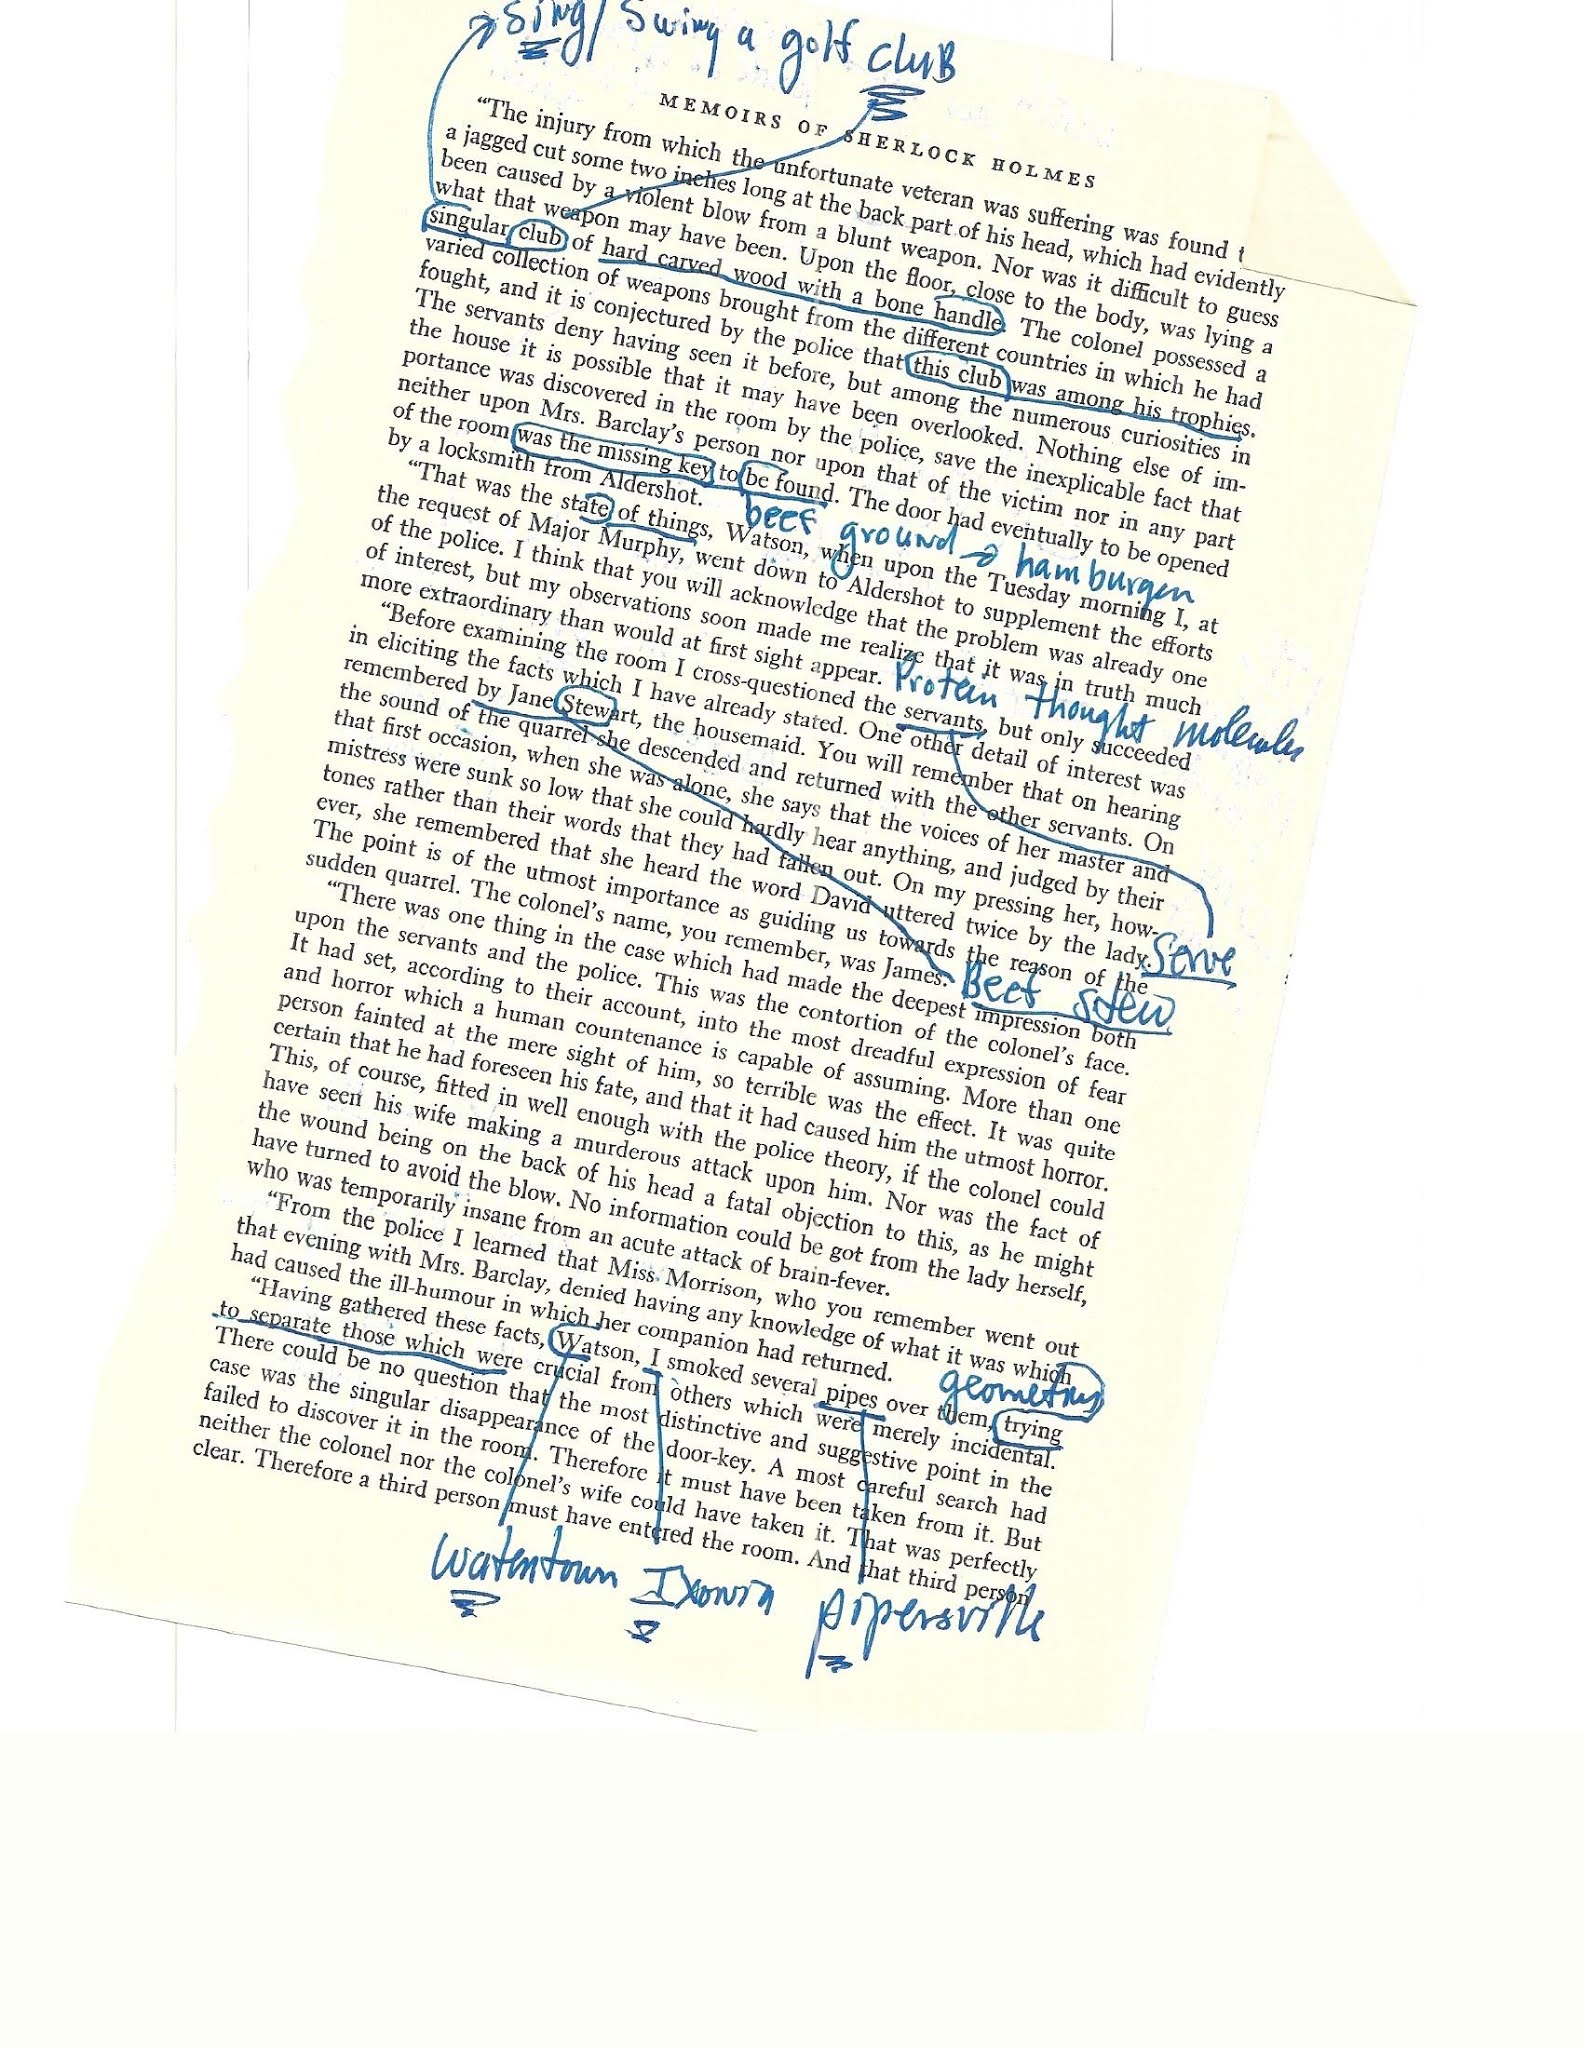 Sing/ Swing a golf cluB
MEMOIRS OF SHERLOCK HOLMES
“The injury from which the unfortunate veteran was suffering was found t
a jagged cut some two inches long at the back part of his head, which had evidently
been caused by a violent blow from a blunt weapon. Nor was it difficult to guess
what that weapon may have been. Upon the floor, close to the body, was lying a
singular club of hard carved wood with a bone handle. The colonel possessed a
varied collection of weapons brought from the different countries in which he had
fought, and it is conjectured by the police that this club was among his trophies.
The servants deny having seen it before, but among the numerous curiosities in
the house it is possible that it may have been overlooked. Nothing else of im-
portance was discovered in the room by the police, save the inexplicable fact that
neither upon Mrs. Barclay’s person nor upon that of the victim nor in any part
of the room was the missing key to be found. The door had eventually to be opened
by a locksmith from Aldershot.
beef ground → hamburger
“That was the state of things, Watson, when upon the Tuesday morning I, at
the request of Major Murphy, went down to Aldershot to supplement the efforts
of the police. I think that you will acknowledge that the problem was already one
of interest, but my observations soon made me realize that it was in truth much
more extraordinary than would at first sight appear.
Protein thought molecules
“Before examining the room I cross-questioned the servants, but only succeeded
in eliciting the facts which I have already stated. One other detail of interest was
remembered by Jane Stewart, the housemaid. You will remember that on hearing
the sound of the quarrel she descended and returned with the other servants. On
that first occasion, when she was alone, she says that the voices of her master and
mistress were sunk so low that she could hardly hear anything, and judged by their
tones rather than their words that they had fallen out. On my pressing her, how-
ever, she remembered that she heard the word David uttered twice by the lady.
Serve
The point is of the utmost importance as guiding us towards the reason of the
sudden quarrel. The colonel’s name, you remember, was James.
Beef stew
“There was one thing in the case which had made the deepest impression both
upon the servants and the police. This was the contortion of the colonel’s face.
It had set, according to their account, into the most dreadful expression of fear
and horror which a human countenance is capable of assuming. More than one
person fainted at the mere sight of him, so terrible was the effect. It was quite
certain that he had foreseen his fate, and that it had caused him the utmost horror.
This, of course, fitted in well enough with the police theory, if the colonel could
have seen his wife making a murderous attack upon him. Nor was the fact of
the wound being on the back of his head a fatal objection to this, as he might
have turned to avoid the blow. No information could be got from the lady herself,
who was temporarily insane from an acute attack of brain-fever.
“From the police I learned that Miss Morrison, who you remember went out
that evening with Mrs. Barclay, denied having any knowledge of what it was which
had caused the ill-humour in which her companion had returned.
geometry
“Having gathered these facts, Watson, I smoked several pipes over them, trying
to separate those which were crucial from others which were merely incidental.
There could be no question that the most distinctive and suggestive point in the
case was the singular disappearance of the door-key. A most careful search had
failed to discover it in the room. Therefore it must have been taken from it. But
neither the colonel nor the colonel’s wife could have taken it. That was perfectly
clear. Therefore a third person must have entered the room. And that third person
Watertown Ixonia pipersville